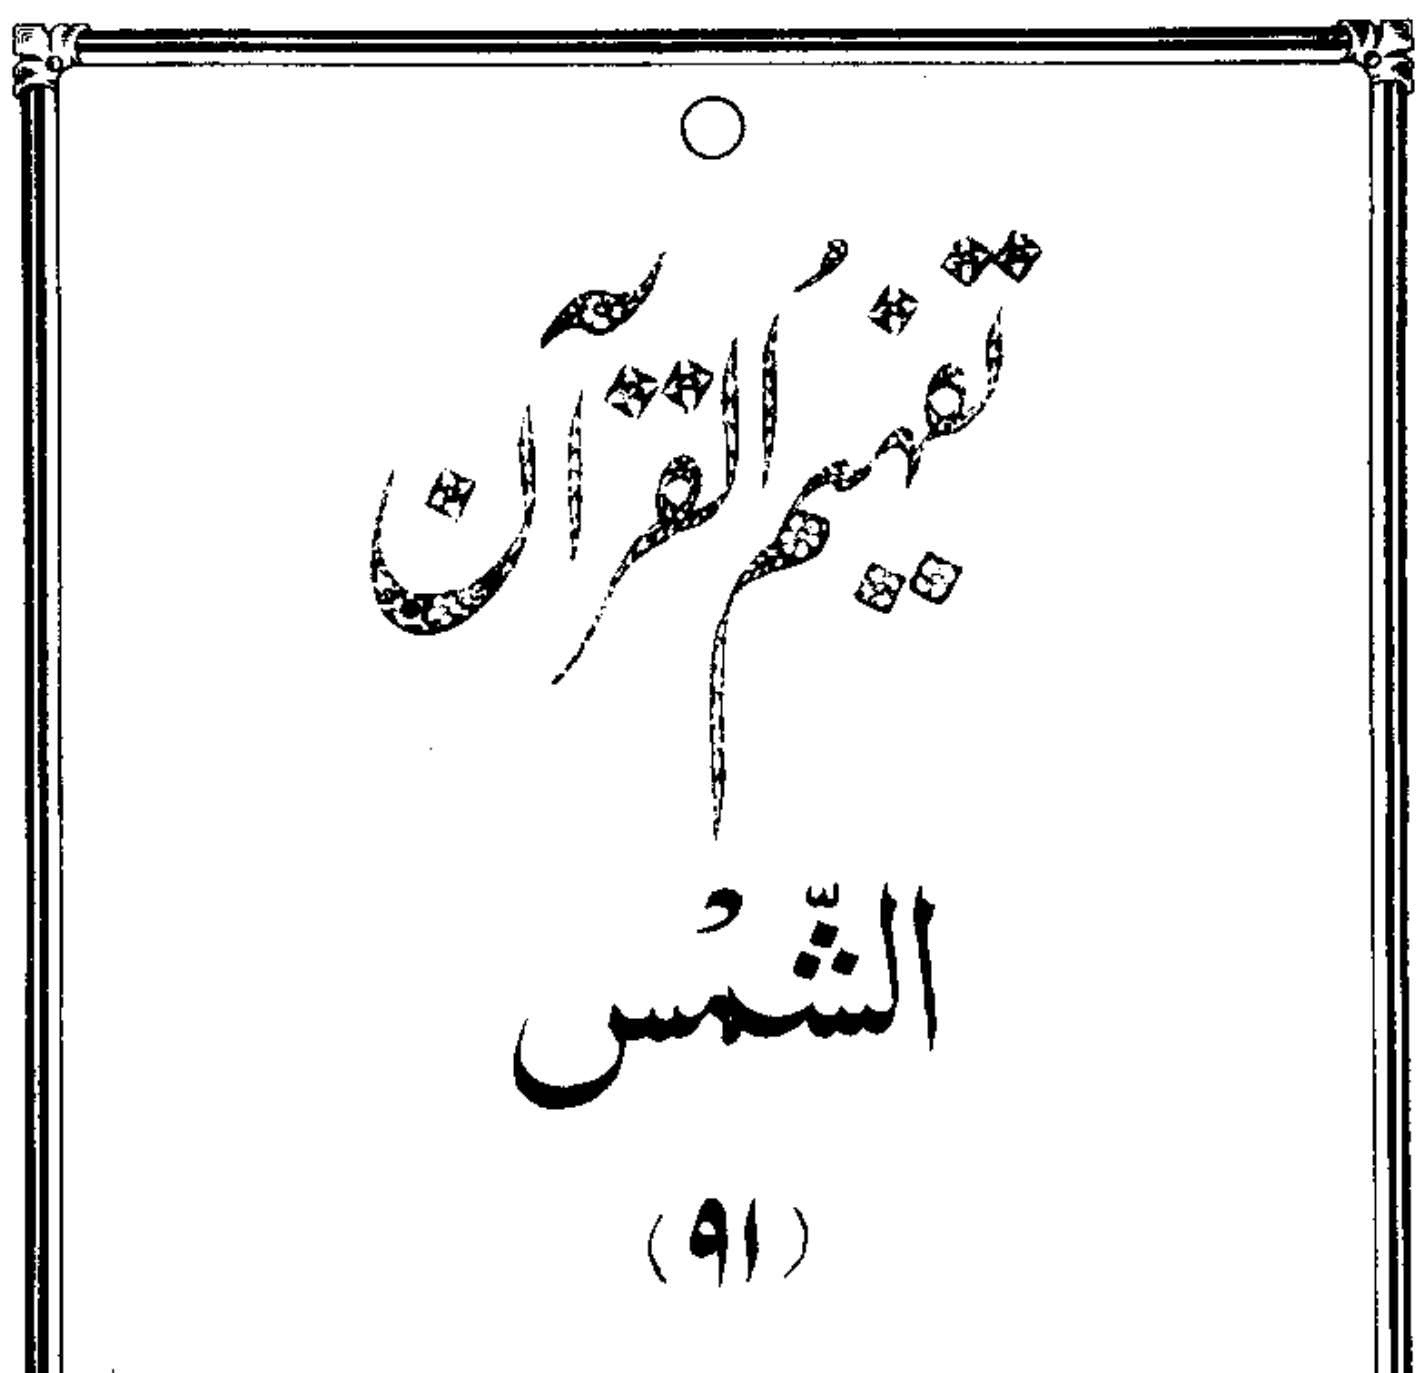 تفہیمُ القرآن
الشَّمْس
(۹۱)